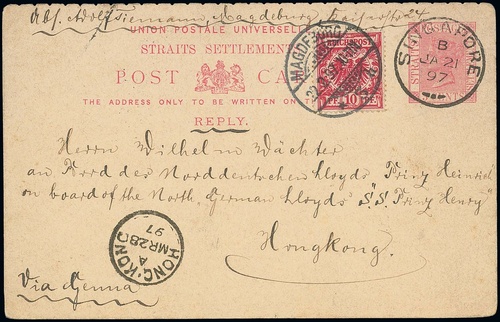 Abs. Adolf Tiemann, Magdeburg,
UNION POSTALE UNIVERSELLE
STRAITS SETTLEMENTS
POST CA
THE ADDRESS ONLY TO BE WRITTEN ON
REPLY.
MAGDEBURG
REICHSPOST
10
SINGAPORE
B
JA 21
97
Herrn Wilhelm Wächter
an Bord des Norddeutschen Lloyds "Prinz Heinrich
on board of the North German Lloyds "S.S. Prinz Henry"
Hongkong.
HONG-KONG
A
MR 28
97
Via Genua